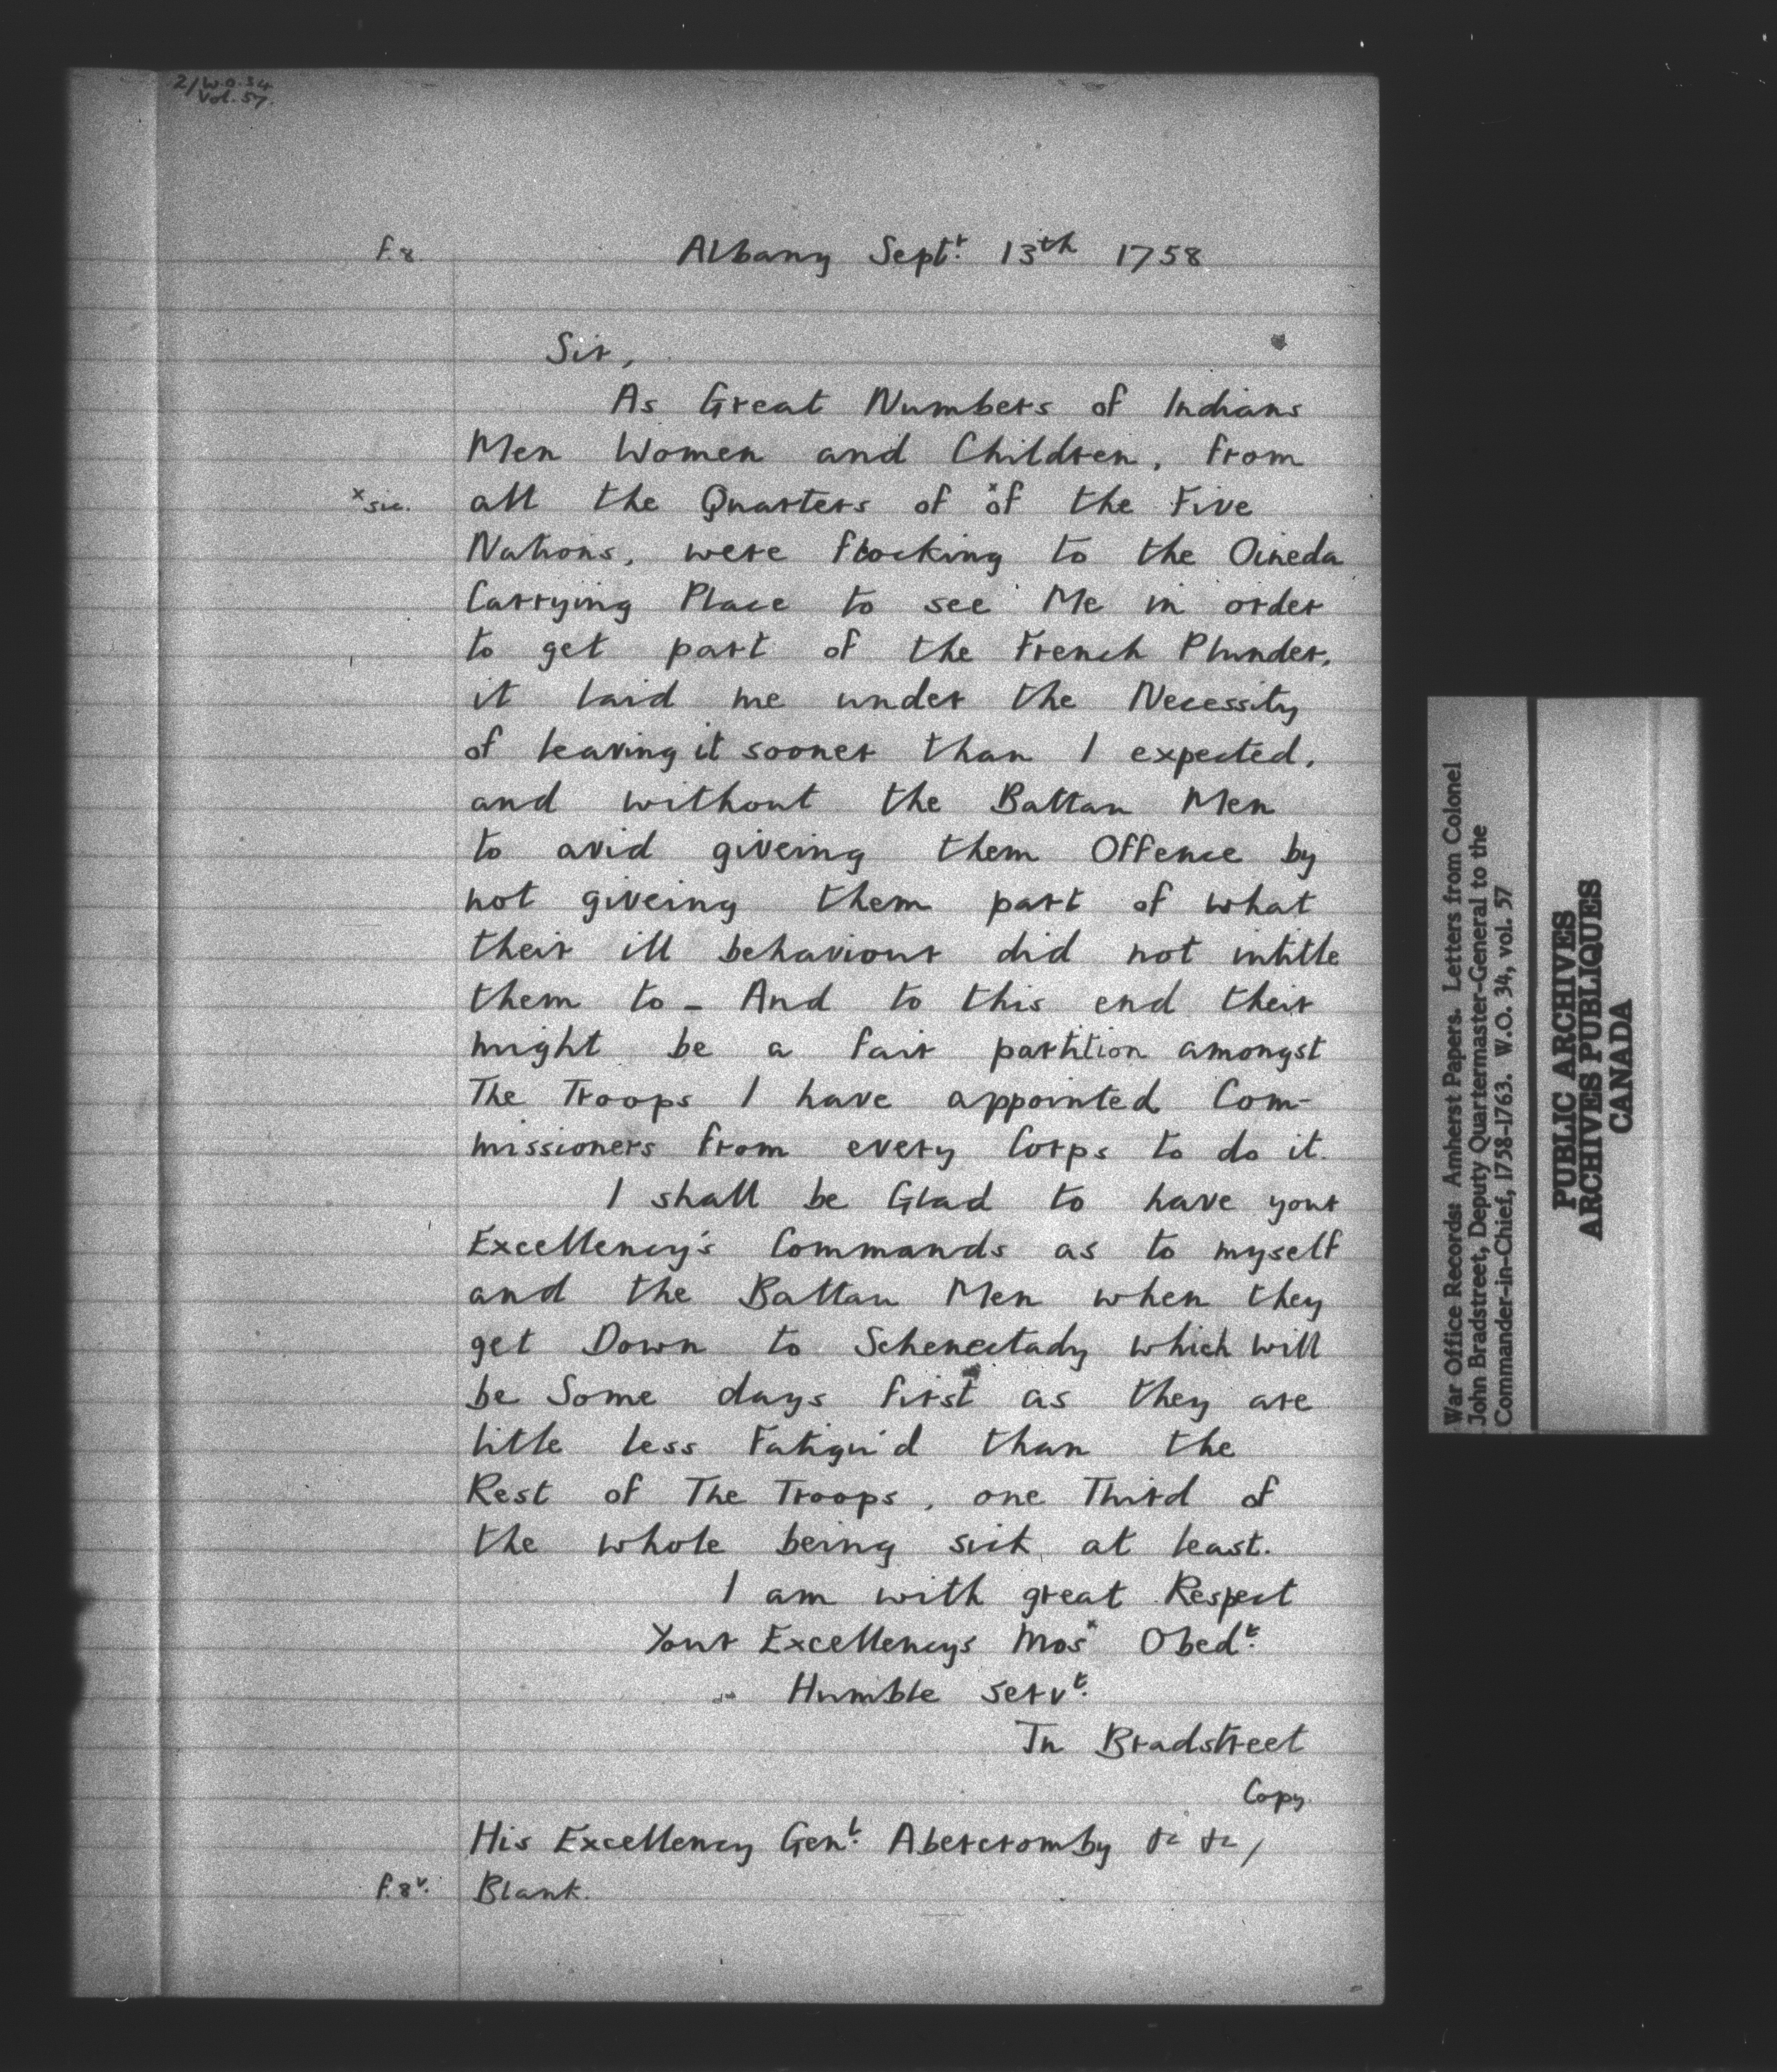 2/W.O.34
Vol. 57.
f.8. Albany Septr. 13th 1758
Sir,
As Great Numbers of Indians
Men Women and Children, from
xsic. all the Quarters of xof the Five
Nations, were flocking to the Oineda
Carrying Place to see Me in order
to get part of the French Plunder,
it laid me under the Necessity
of leaving it sooner than I expected,
and without the Battau Men
to avid giveing them Offence by
not giveing them part of what
their ill behaviour did not intitle
them to - And to this end their
might be a fair partition amongst
The Troops I have appointed Com-
missioners from every Corps to do it.
I shall be Glad to have your
Excellency's Commands as to myself
and the Battau Men when they
get Down to Schenectady which will
be Some days first as they are
little less Fatigu'd than the
Rest of The Troops, one Third of
the whole being sick at least.
I am with great Respect
Your Excellencys Most Obedt.
Humble Servt.
Jn Bradstreet
Copy.
His Excellency Genl. Abercromby &c &c,
f.8v. Blank.
War Office Records: Amherst Papers. Letters from Colonel
John Bradstreet, Deputy Quartermaster-General to the
Commander-in-Chief, 1758-1763. W.O. 34, vol. 57
PUBLIC ARCHIVES
ARCHIVES PUBLIQUES
CANADA